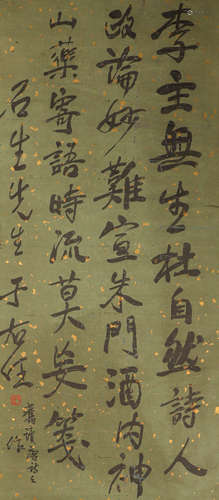 李主無生杜自然詩人
政論妙難宣朱門酒肉神
山藥寄語時流莫妄箋
石生先生 于右任
舊讀唐詩之
作